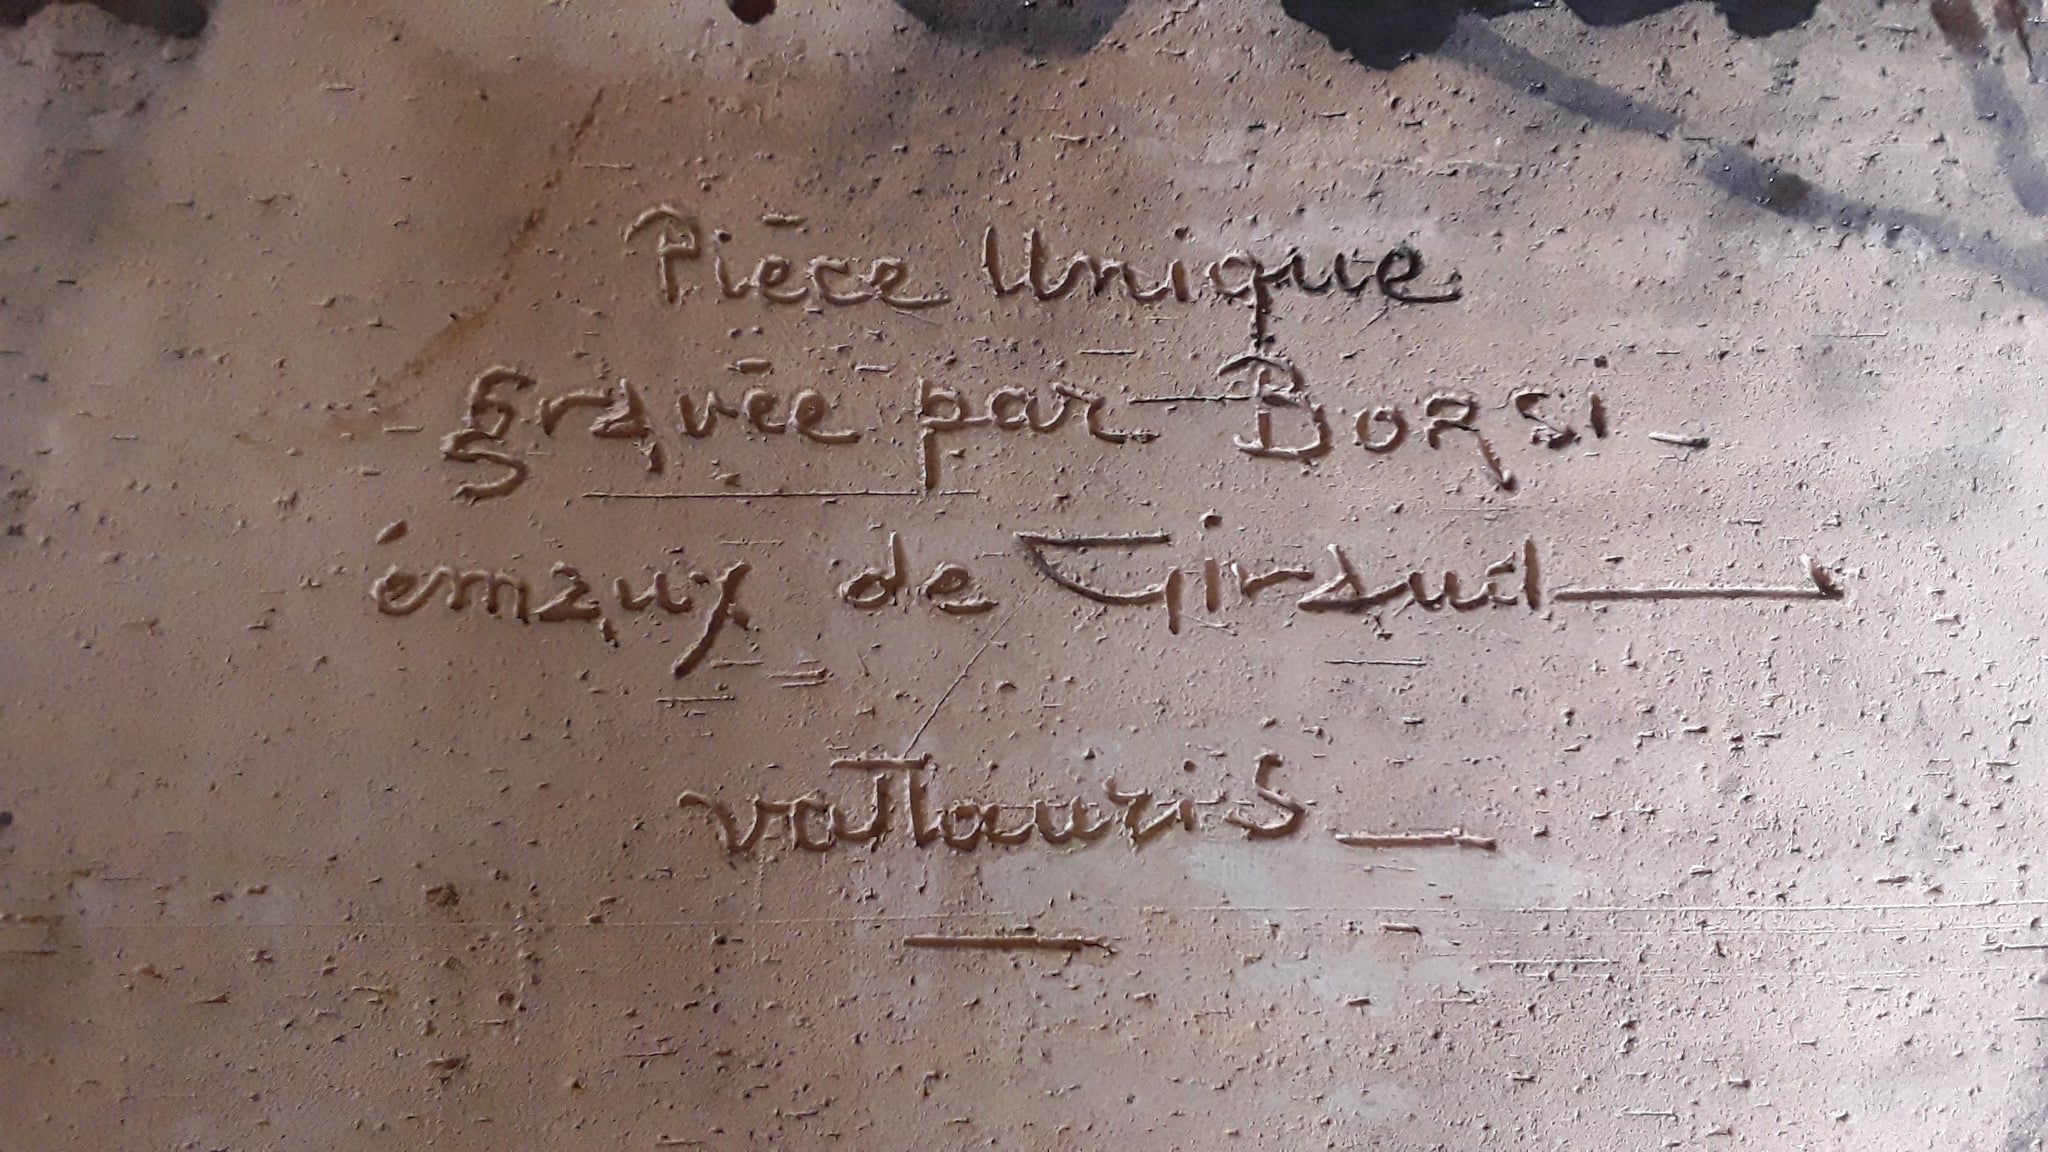 Pièce Unique
gravée par Borsi _
émaux de Giraud
vallauris _